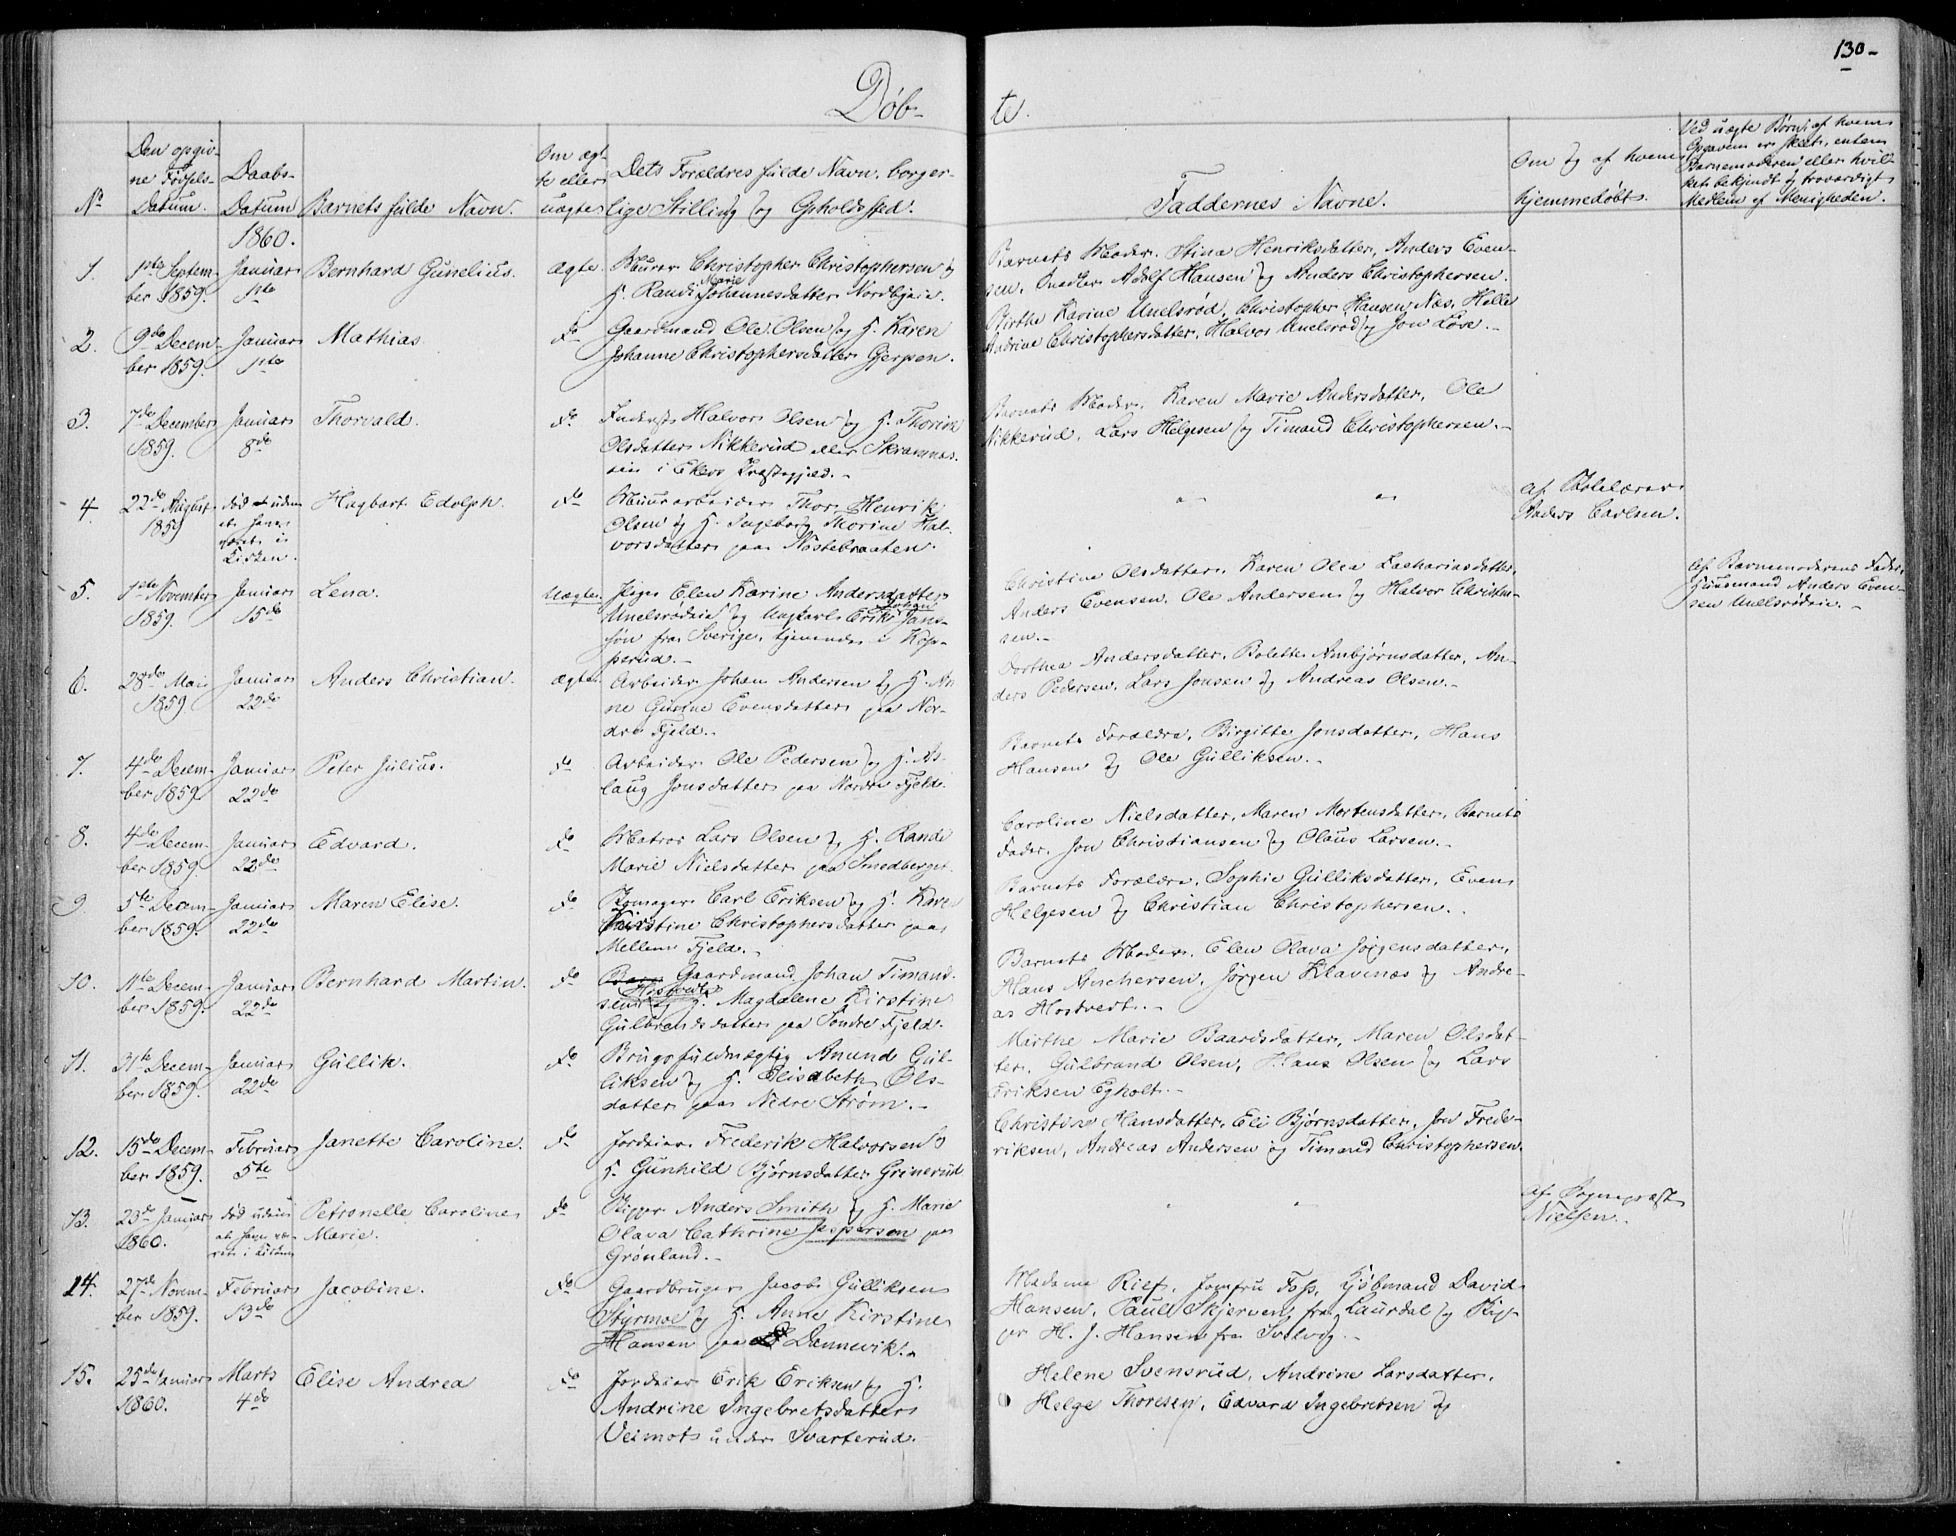 130-
Døb-
te.
No
Den opgiv-
ne Fødsels-
Datum.
Daabs-
Datum
Barnets fulde Navn.
Om æg-
te eller
uægte
Dets Forældres fulde Navn, borger-
lige Stilling og Opholdssted.
Faddernes Navne.
Om og af hvem
hjemmedøbt.
Ved uægte Børn, af hvem
Opgaven er skeet, enten
Barnemoderen eller hvil-
ket bekjendt og troværdigt
Medlem af Menigheden.
1860.
1.
1ste Septem-
ber 1859.
Januar
1ste
Bernhard Gunelius.
Ægte.
Murer Christopher Christophersen og
H. Randi Marie Johannesdatter Nordbyeie.
Barnets Moder, Stina Henriksdatter, Anders Even-
sen, Snedker Adolf Hansen og Anders Christophersen.
2.
9de Decem-
ber 1859.
Januar
1ste
Mathias
do
Gaardmand Ole Olsen og H. Karen
Johanne Christophersdatter Gjerpen.
Birthe Karine Unelsrød, Christopher Hansen Næs, Helle
Andrine Christophersdatter, Halvor Unelsrød og Jon Løve.
3.
7de December
1859.
Januar
8de
Thorvald.
do
Inderst Halvor Olsen og H. Thorine
Olsdatter Nikkerud eller Skramnes-
eie i Ekers Præstegjeld.
Barnets Moder, Karen Marie Andersdatter, Ole
Nikkerud, Lars Helgesen og Timand Christophersen.
4.
22de August
1859
død uden
at have
været i
Kirken.
Hagbart Edolph.
do
Muurarbeider Thor Henrik
Olsen og H. Ingeborg Thorine Hal-
vorsdatter paa Nøstebraaten.
af Skolelærer
Anders Carlsen.
5.
1ste November
1859.
Januar
15de
Lena.
Uægte.
Pige Elen Karine Andersdatter
Unelsrødeie og Ungkarl Erik Johan Jans-
søn fra Sverige, tjenende i Kop-
perud.
Christine Olsdatter, Karen Olea Zachariasdatter,
Anders Evensen, Ole Andersen og Halvor Christen-
sen.
af Barnemoderens Fader,
Huusmand Anders Even-
sen Unelsrødeie.
6.
28de Mai
1859
Januar
22de
Anders Christian.
Ægte
Arbeider Johan Andersen og H. An-
ne Gurine Evensdatter paa Nor-
dre Fjeld.
Dorthea Andersdatter, Bolette Ambjørnsdatter, An-
ders Pedersen, Lars Jonsen og Andreas Olsen.
7.
4de Decem-
ber 1859
Januar
22de
Peter Julius.
do
Arbeider Ole Pedersen og H. As-
laug Jonsdatter paa Nordre Fjeld.
Barnets Forældre, Birgitte Jonsdatter, Hans
Hansen og Ole Gulliksen.
8.
4de Decem-
ber 1859
Januar
22de
Edvard.
do
Matros Lars Olsen og H. Randi
Marie Nielsdatter paa Smedberget.
Caroline Nielsdatter, Maren Mortensdatter, Barnets
Fader, Jon Christiansen og Olaus Larsen.
9.
5te Decem-
ber 1859.
Januar
22de
Maren Elise.
do
Skomager Carl Eriksen og H. Karen
Kirstine Christophersdatter paa
Mellem Fjeld.
Barnets Forældre, Sophie Gulliksdatter, Even
Helgesen og Christian Christophersen.
10.
11te Decem-
ber 1859.
Januar
22de
Bernhard Martin.
do
Gaardmand Johan Timand-
sen Hostvedt og H. Magdalene Kirstine
Gulbrandsdatter paa Søndre Fjeld.
Barnets Moder, Elen Olava Jørgensdatter,
Hans Anchersen, Jørgen Klavenæs og Andre-
as Hostvedt.
11.
31te Decem-
ber 1859.
Januar
22de
Gullik.
do
Brugsfuldmægtig Anund Gul-
liksen og H. Elisabeth Ols-
datter paa Nedre Strøm.
Mirthe Marie Baardsdatter, Maren Olsdat-
ter, Gulbrand Olsen, Hans Olsen og Lars
Eriksen Egholt.
12.
15de Decem-
ber 1859.
Februar
5te
Janette Caroline.
do
Jordeier Frederik Halvorsen og
H. Gunhild Bjørnsdatter Grinerud
Christine Hansdatter, Eli Bjørnsdatter, Jon Frede-
riksen, Andreas Andersen og Timand Christophersen.
13.
23de Januar
1860.
død uden
at have væ-
ret i Kirken
Petronelle Caroline
Marie.
do
Skipper Anders Smith og H. Marie
Olava Cathrine Jespersen paa
Grønland.
af Sognepræst
Nielsen.
14.
27de Novem-
ber 1859.
Februar
13de
Jacobine.
do
Gaardbruger Jacob Gulliksen
Styrmoe og H. Anne Kirstine
Hansen paa Dannevik.
Madame Rief, Jomfru Foss, Kjøbmand David
Hansen, Paul Skjerven fra Laurdal og Skip-
per H. J. Hansen fra Svelvig.
15.
25de Januar
1860.
Marts
4de
Elise Andrea
do
Jordeier Erik Eriksen og H.
Andrine Ingebretsdatter
Veimot under Svarterud.
Helene Svensrud, Andrine Larsdatter,
Helge Thoresen, Edvard Ingebretsen og